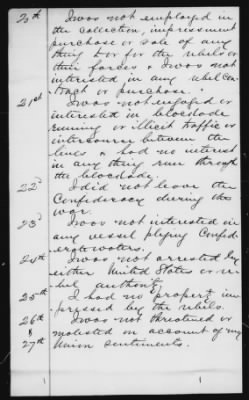 20th I was not employed in
the collection, impressment
purchase or sale of any
thing for the rebels or
their forces & I was not
interested in any rebel con-
tract or purchase.
21st I was not engaged or
interested in blockade
running or illicit traffic or
intercourse between the
lines & had no interest
in any thing run through
the blockade.
22d I did not leave the
Confederacy during the
war.
23d I was not interested in
any vessel plying Confed-
erate waters.
24th I was not arrested by
either United States or re-
bel authority
25th I had no property im-
pressed by the rebels.
26th I was not threatened or
& molested on account of my
27th Union sentiments.
1 1